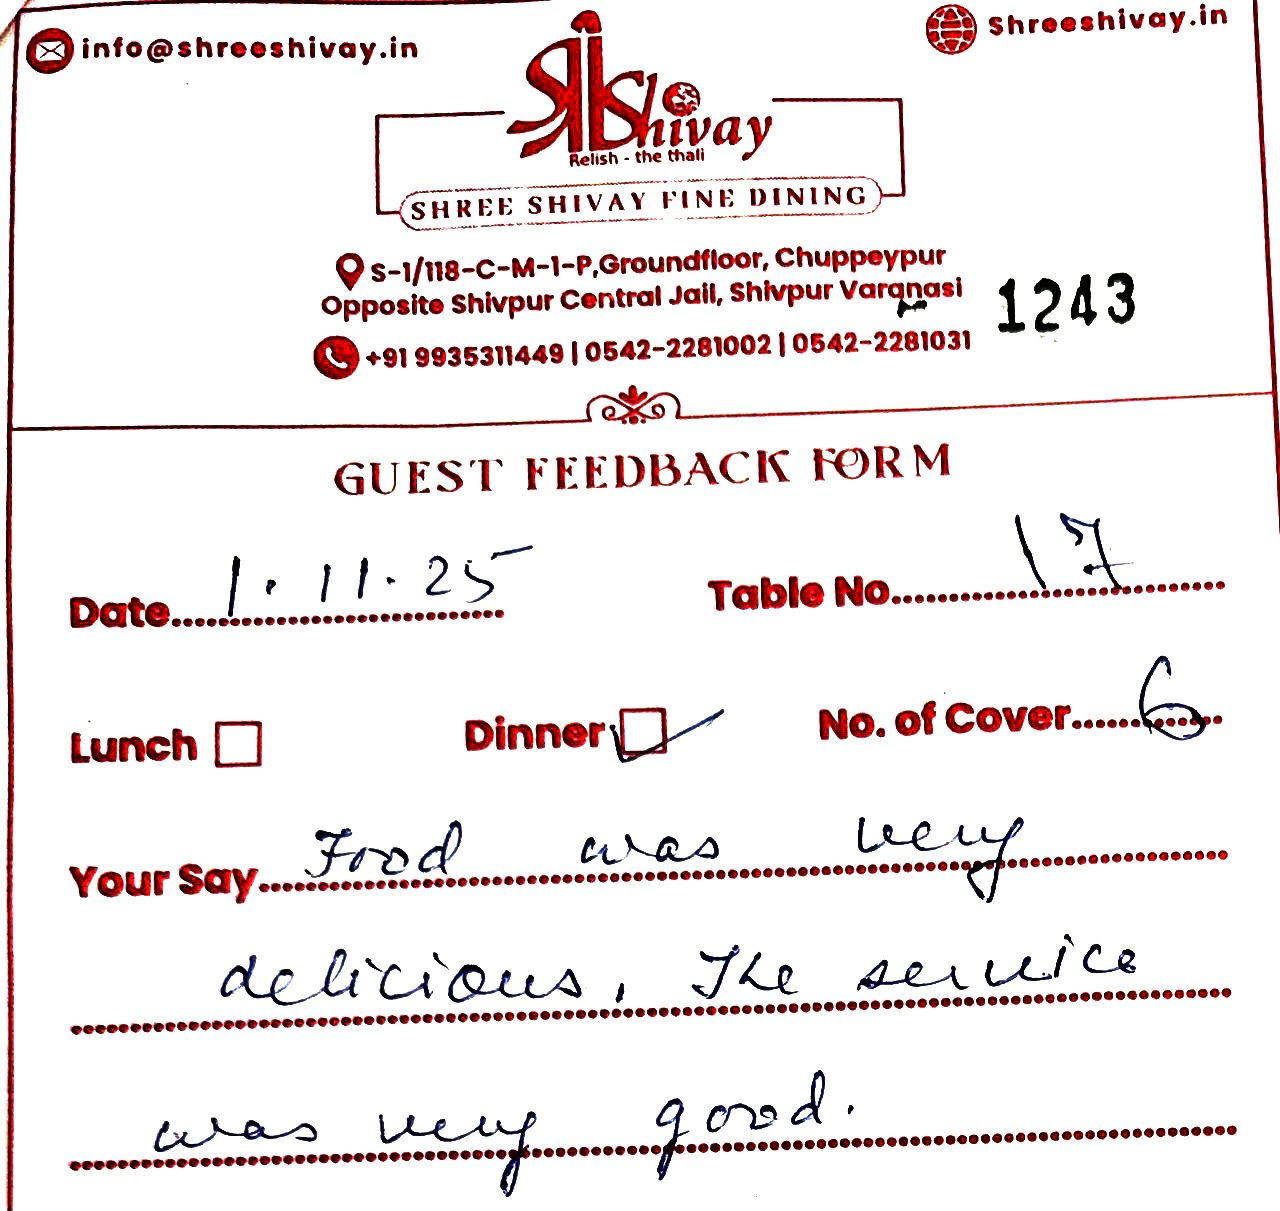 info@shreeshivay.in
Shreeshivay.in
Shivay
Relish - the thali
SHREE SHIVAY FINE DINING
S-1/118-C-M-1-P,Groundfloor, Chuppeypur
Opposite Shivpur Central Jail, Shivpur Varanasi
1243
+91 9935311449 | 0542-2281002 | 0542-2281031
GUEST FEEDBACK FORM
Date 1.11.25 Table No. 17
Lunch Dinner ✓ No. of Cover 6
Your Say Food was very
delicious, The service
was very good.